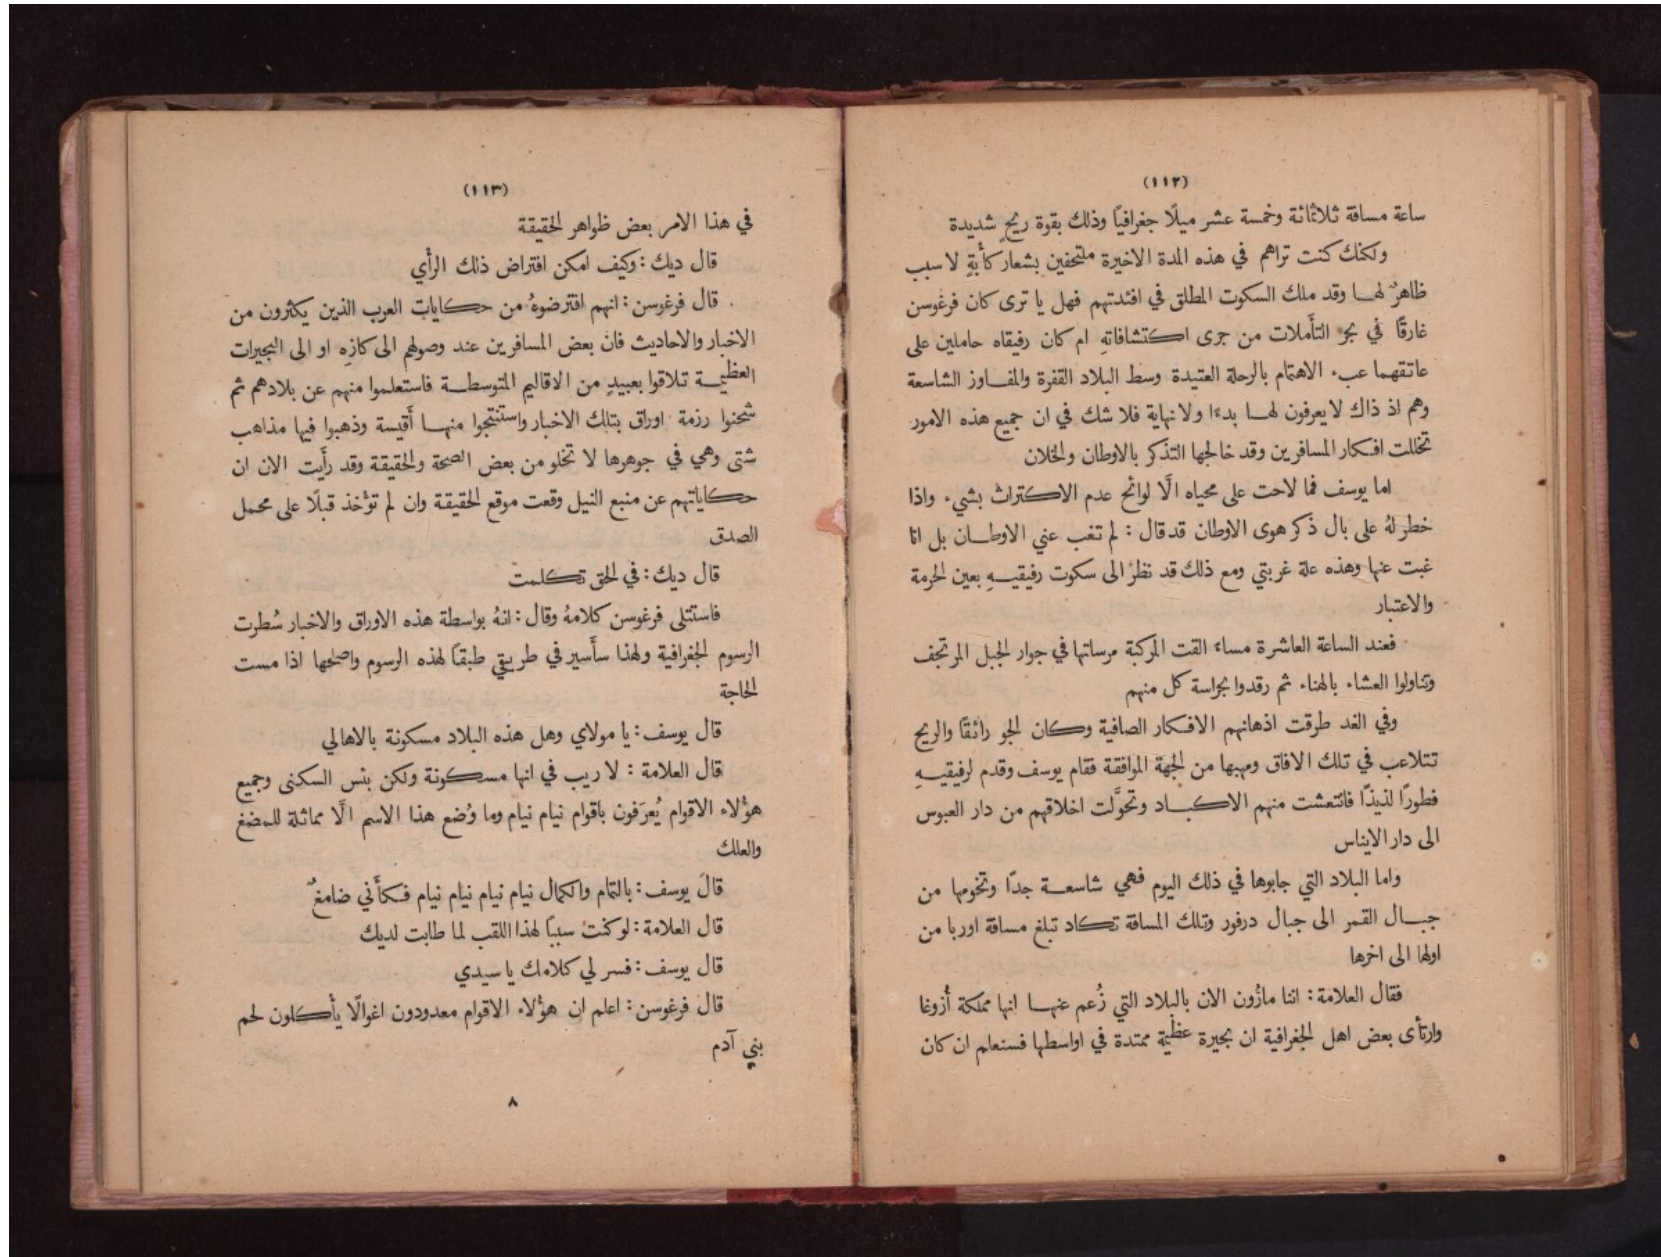 (١١٢)
ساعة مسافة ثلاثمائة وخمسة عشر ميلًا جغرافيًا وذلك بقوة ريحٍ شديدة
ولكنك كنت تراهم في هذه المدة الاخيرة ملتحفين بشعار كأبةٍ لا سبب
ظاهرٌ لهـا وقد ملك السكوت المطلق في افئدتهم فهل يا ترى كان فرغوسن
غارقًا في بحر التأملات من جرى اكتشافاتهِ ام كان رفيقاه حاملين على
عاتقهما عبء الاهتمام بالرحلة العتيدة وسط البلاد القفرة والمفـاوز الشاسعة
وهم اذ ذاك لا يعرفون لهـا بدءا ولا نهاية فلا شك في ان جميع هذه الامور
تخللت افكار المسافرين وقد خالجها التذكر بالاوطان والخلان
اما يوسف فما لاحت على محياه الَّا لوائح عدم الاكتراث بشيء واذا
خطر لهُ على بال ذكر هوى الاوطان قد قال : لم تغب عني الاوطـان بل انا
غبت عنها وهذه علة غربتي ومع ذلك قد نظر الى سكوت رفيقيـهِ بعين الحرمة
والاعتبار
فعند الساعة العاشرة مساءً القت المركبة مرساتها في جوار الجبل المرتجف
وتناولوا العشاء بالهناء ثم رقدوا بحراسة كل منهم
وفي الغد طرقت اذهانهم الافكار الصافية وكان الجو رائقًا والريح
تتلاعب في تلك الافاق ومهبها من الجهة الموافقة فقام يوسف وقدم لرفيقيـهِ
فطورًا لذيذًا فانتعشت منهم الاكبـاد وتحوَّلت اخلاقهم من دار العبوس
الى دار الايناس
واما البلاد التي جابوها في ذلك اليوم فهي شاسعـة جدًا وتخومها من
جبـال القمر الى جبال درفور وتلك المسافة تكاد تبلغ مسافة اوربا من
اولها الى اخرها
فقال العلامة : اننا مارُّون الان بالبلاد التي زُعم عنهـا انها مملكة أزوغا
وارتأى بعض اهل الجغرافية ان بحيرة عظيمة ممتدة في اواسطها فسنعلم ان كان
(١١٣)
في هذا الامر بعض ظواهر الحقيقة
قال ديك : وكيف امكن افتراض ذلك الرأي
قال فرغوسن : انهم افترضوهُ من حكايات العرب الذين يكثرون من
الاخبار والاحاديث فان بعض المسافرين عند وصولهم الى كازه او الى البحيرات
العظيمـة تلاقوا بعبيدٍ من الاقاليم المتوسطـة فاستعلموا منهم عن بلادهم ثم
شحنوا رزمة اوراق بتلك الاخبار واستنتجوا منهـا أقيسة وذهبوا فيها مذاهب
شتى وهي في جوهرها لا تخلو من بعض الصحة والحقيقة وقد رأيت الان ان
حكاياتهم عن منبع النيل وقعت موقع الحقيقة وان لم تؤخذ قبلًا على محمل
الصدق
قال ديك : في الحق تكلمت
فاستتلى فرغوسن كلامهُ وقال : انهُ بواسطة هذه الاوراق والاخبار سُطرت
الرسوم الجغرافية ولهذا سأسير في طريقي طبقًا لهذه الرسوم واصلحها اذا مست
الحاجة
قال يوسف : يا مولاي وهل هذه البلاد مسكونة بالاهالي
قال العلامة : لا ريب في انها مسكونة ولكن بئس السكنى وجميع
هؤلاء الاقوام يُعرَفون باقوام نيام نيام وما وُضع هذا الاسم الَّا مماثلة للمضغ
والعلك
قال يوسف : بالتمام والكمال نيام نيام نيام نيام فكأني ضامغٌ
قال العلامة : لو كنت سببًا لهذا اللقب لما طابت لديك
قال يوسف : فسر لي كلامك يا سيدي
قال فرغوسن : اعلم ان هؤلاء الاقوام معدودون اغوالًا يأكلون لحم
بني آدم
٨